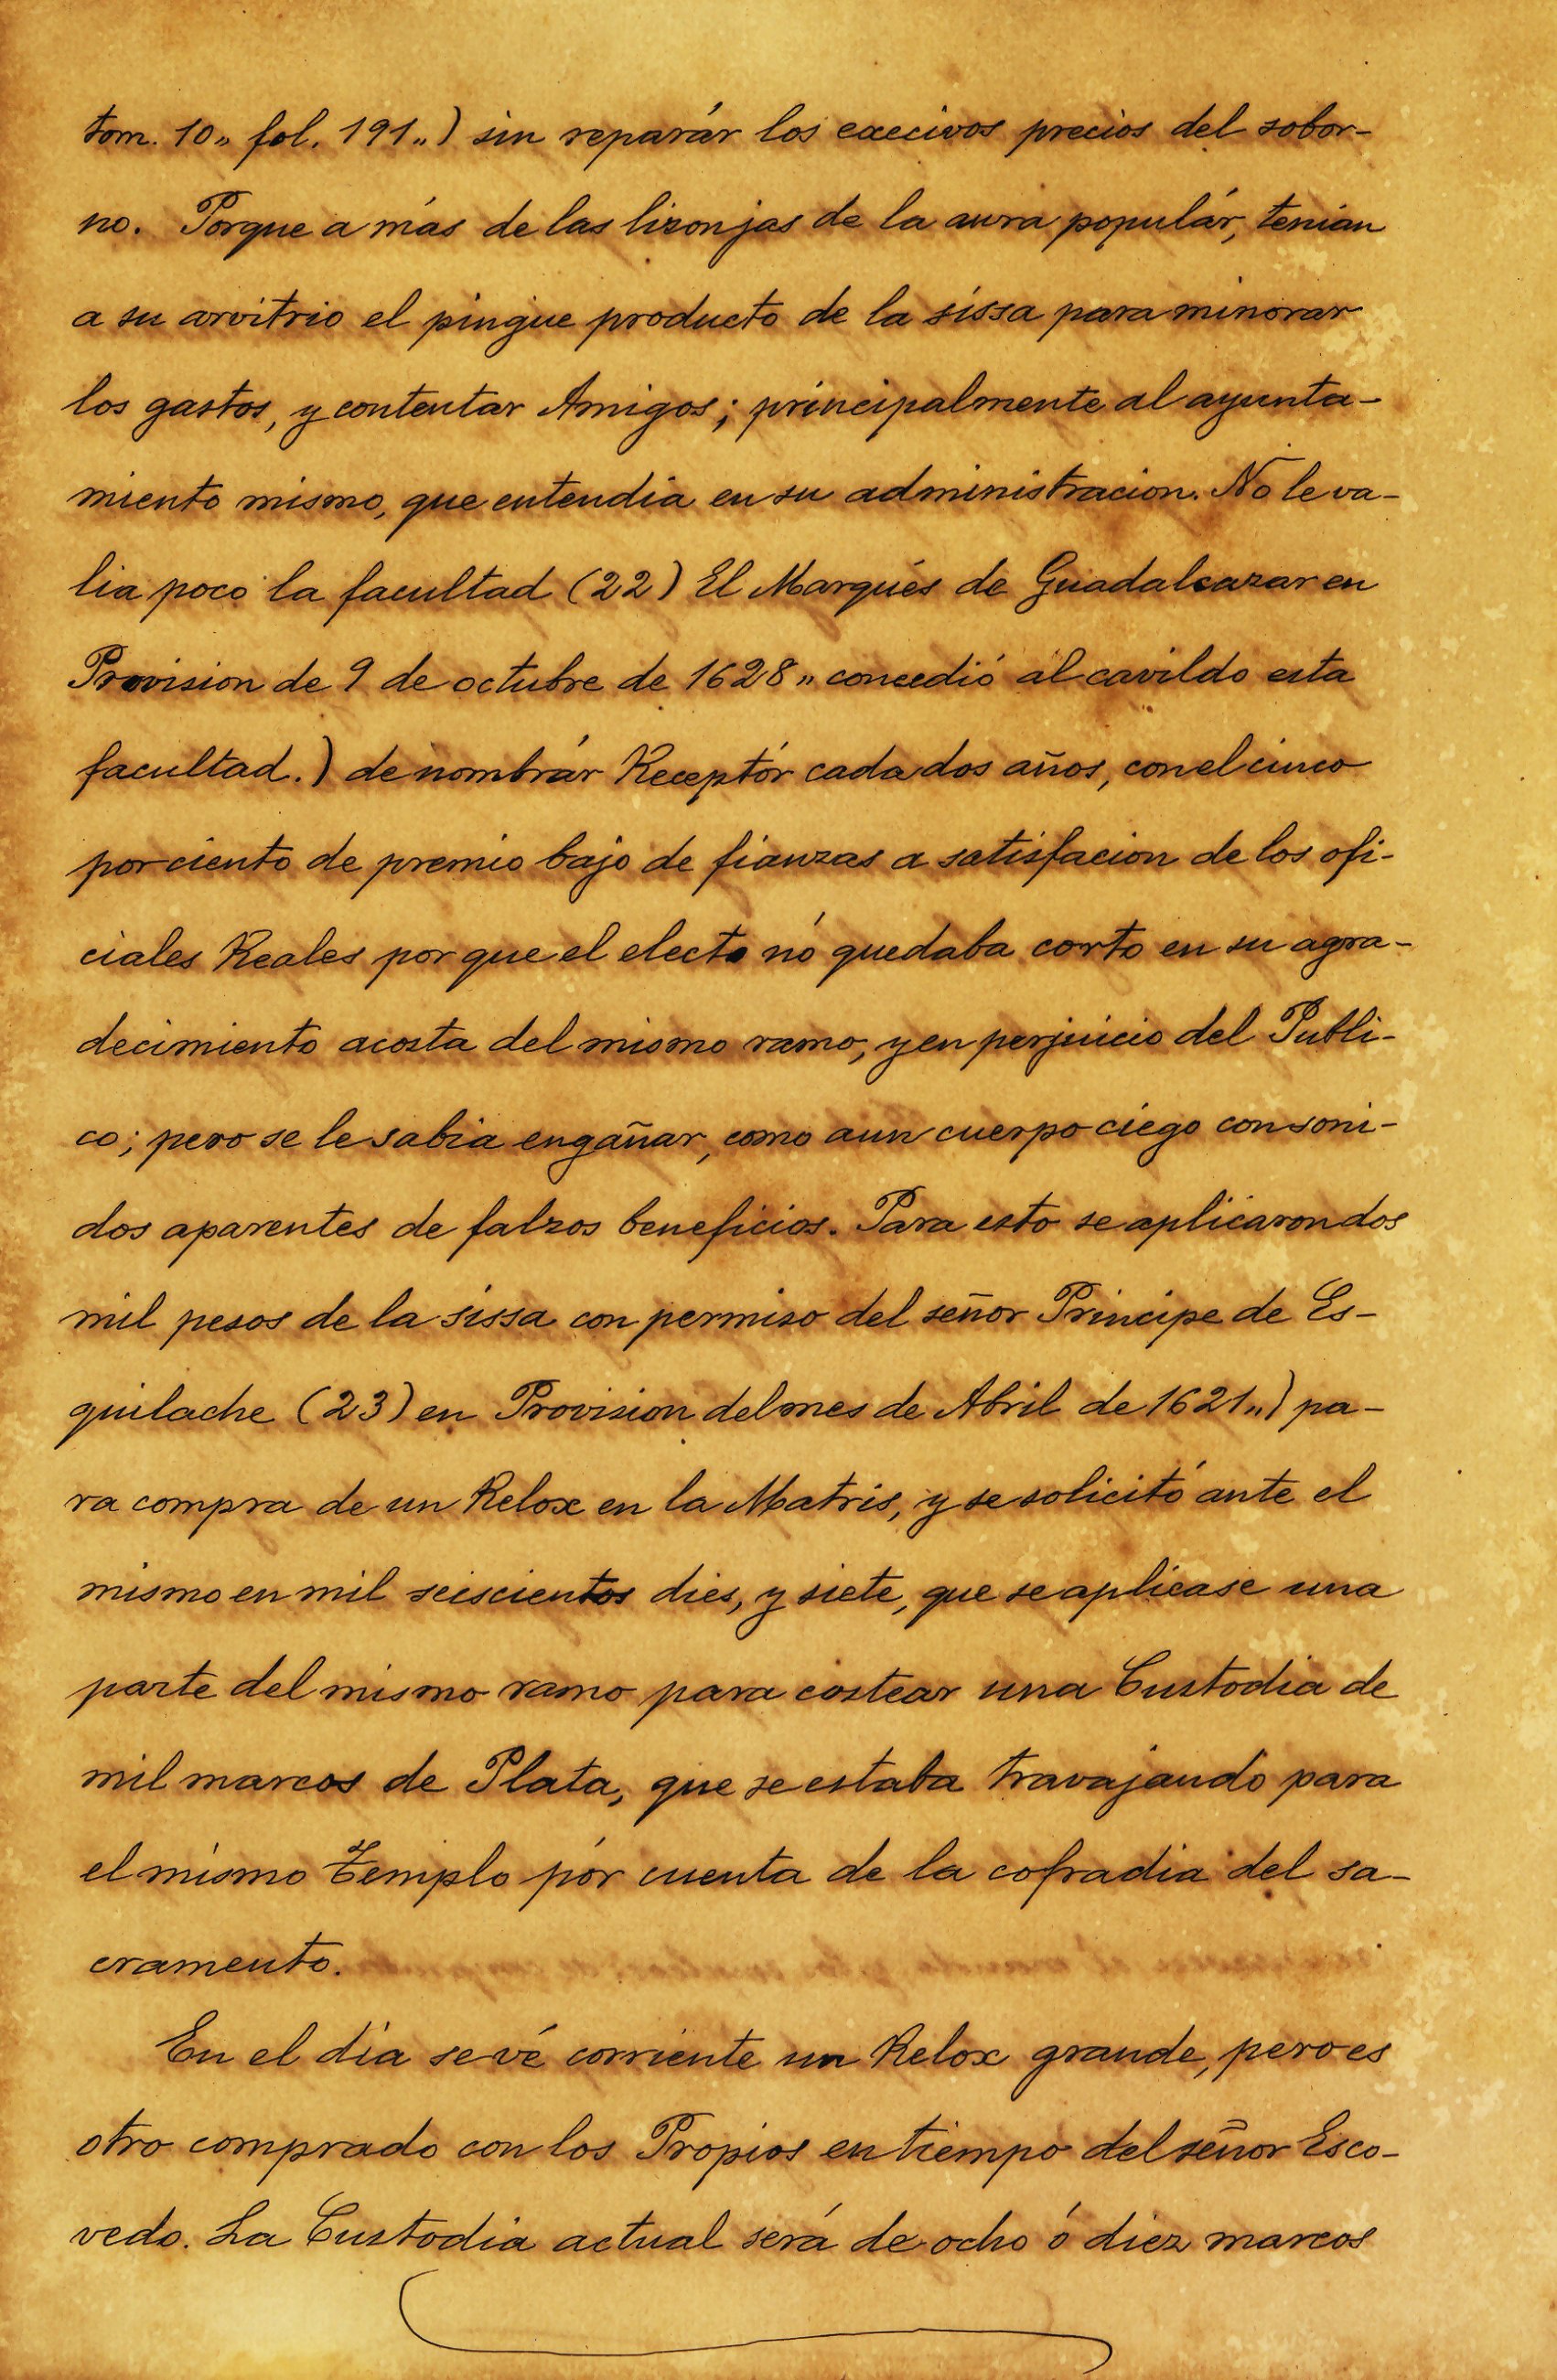 tom. 10„ fol. 191„) sin reparár los execivos precios del sobor-
no. Porque a más de las lizonjas de la aura populár, tenian
a su arvitrio el pingue producto de la sissa para minorar
los gastos, y contentar Amigos; principalmente al ayunta-
miento mismo, que entendia en su administracion. No le va-
lia poco la facultad (22) El Marqués de Guadalcazar en
Provision de 9 de octubre de 1628„ concedió al cavildo esta
facultad.) de nombrár Receptór cada dos años, con el cinco
por ciento de premio bajo de fianzas a satisfacion de los ofi-
ciales Reales por que el electo nó quedaba corto en su agra-
decimiento acosta del mismo ramo, y en perjuicio del Publi-
co; pero se le sabia engañar, como aun cuerpo ciego con soni-
dos aparentes de falzos beneficios. Para esto se aplicaron dos
mil pesos de la sissa con permiso del señor Principe de Es-
quilache (23) en Provision del mes de Abril de 1621„) pa-
ra compra de un Relox en la Matris, y se solicitó ante el
mismo en mil seiscientos dies, y siete, que se aplicase una
parte del mismo ramo para costear una Custodia de
mil marcos de Plata, que se estaba travajando para
el mismo Templo pór cuenta de la cofradia del sa-
cramento.
En el dia se vé corriente un Relox grande, pero es
otro comprado con los Propios en tiempo del señor Esco-
vedo. La Custodia actual será de ocho ó diez marcos